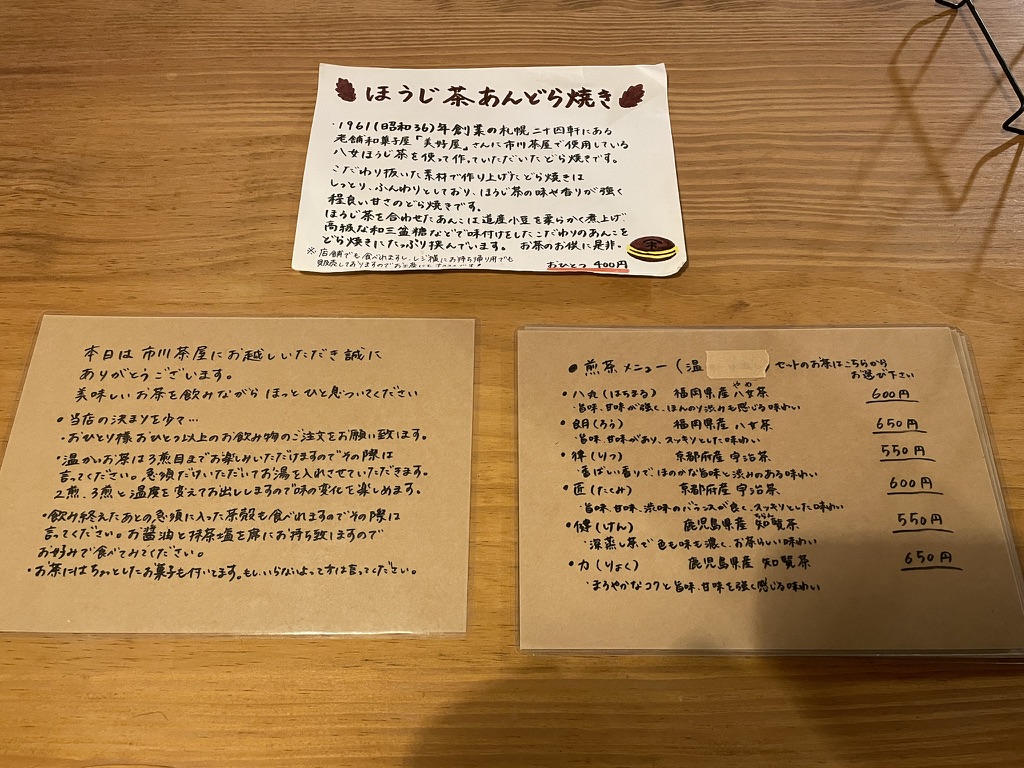 ほうじ茶あんどら焼き
・1961(昭和36)年創業の札幌二十四軒にある
老舗和菓子屋「美好屋」さんに市川茶屋で使用している
八女ほうじ茶を使って作っていただいたどら焼きです。
こだわり抜いた素材で作り上げたどら焼きは
しっとり、ふんわりとしており、ほうじ茶の味や香りが強く
程良い甘さのどら焼きです。
ほうじ茶を合わせたあんこは道産小豆を柔らかく煮上げ
高級な和三盆糖などで味付けをしたこだわりのあんこを
どら焼きにたっぷり挟んでいます。 お茶のお供に是非。
※店舗でも食べれますし、レジ横にお持ち帰り用でも
販売しておりますので
おひとつ 400円
本日は市川茶屋にお越しいただき誠に
ありがとうございます。
美味しいお茶を飲みながらほっとひと息ついてください
●当店の決まりを少々…
・おひとり様おひとつ以上のお飲み物のご注文をお願い致します。
・温かいお茶は3煎目までお楽しみいただけますのでその際は
言ってください。急須だけいただいてお湯を入れさせていただきます。
2煎、3煎と温度を変えてお出ししますので味の変化を楽しめます。
・飲み終えたあとの急須に入った茶殻も食べれますのでその際は
言ってください。お醤油と抹茶塩を席にお持ち致しますので
お好みで食べてみてください。
・お茶にはちょっとしたお菓子も付いてます。もし、いらないよって方は言ってください。
●煎茶メニュー(温
セットのお茶はこちらから
お選び下さい
・八丸(はちまる) 福岡県産 八女茶 600円
やめ
・旨味、甘味が強く、ほんのり渋みも感じる味わい
・朗(ろう) 福岡県産 八女茶 650円
・旨味、甘味があり、スッキリとした味わい
・律(りつ) 京都府産 宇治茶 550円
・香ばしい香りで、ほのかな旨味と渋みのある味わい
・匠(たくみ) 京都府産 宇治茶 600円
・旨味、甘味、渋味のバランスが良く、スッキリとした味わい
・健(けん) 鹿児島県産 知覧茶 550円
ちらん
・深蒸し茶で色も味も濃く、お茶らしい味わい
・力(りょく) 鹿児島県産 知覧茶 650円
・まろやかなコクと旨味、甘味を強く感じる味わい